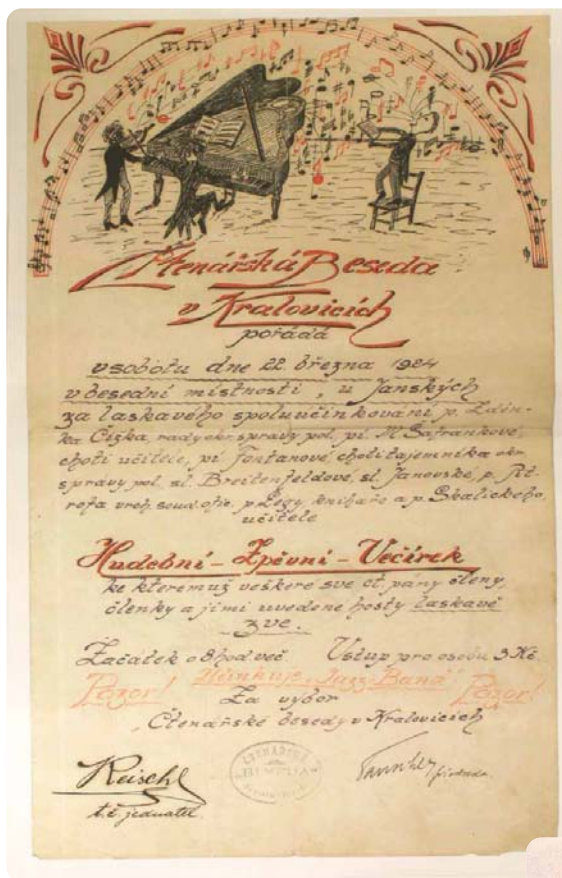 Čtenářská Beseda
v Kralovicích
pořádá
v sobotu dne 22. března 1924
v besední místnosti „u Janských
za laskavého spoluúčinkování p. Zdeň-
ka Čížka, rady okr. správy pol., pí. M. Šafránkové,
choti učitele, pí. Fontanové, choti tajemníka okr.
správy pol., sl. Breitenfeldové, sl. Janovské, p. Pit-
rofa vrch. soud. ofic. p. Legy, knihaře a p. Skalického,
učitele
Hudební - Zpěvní - Večírek
ke kteremuž veškere sve ct. pány členy,
členky a jimi uvedene hosty laskavě
zve.
Začátek o 8 hod. več. Vstup pro osobu 3 Kč.
Pozor! Účinkuje „Jazz-Band" Pozor!
Za výbor
Čtenářské besedy v Kralovicích
Reischl
t. č. jednatel
předseda.
ČTENÁŘSKÁ